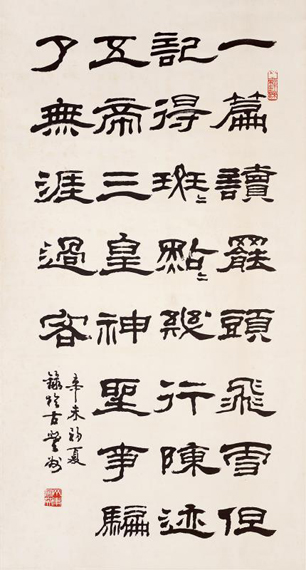 一篇讀罷頭飛雪但
記得班〻點〻幾行陳迹
五帝三皇神聖事騙
了無涯過客
辛未初夏
錄於古州